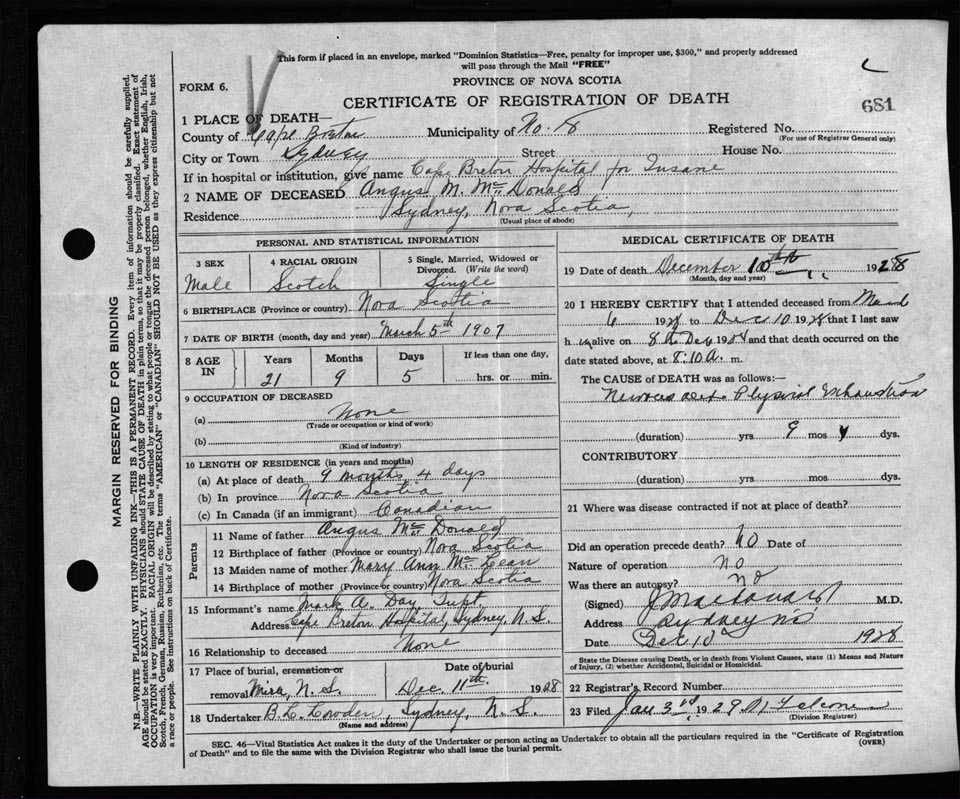 This form if placed in an envelope, marked "Dominion Statistics—Free, penalty for improper use, $300," and properly addressed
will pass through the Mail "FREE"
FORM 6.
PROVINCE OF NOVA SCOTIA
CERTIFICATE OF REGISTRATION OF DEATH
681
1 PLACE OF DEATH—
County of Cape Breton Municipality of No. 8 Registered No.
(For use of Registrar General only)
City or Town Sydney Street House No.
If in hospital or institution, give name Cape Breton Hospital for Insane
2 NAME OF DECEASED Angus M. McDonald
Residence Sydney, Nova Scotia,
(Usual place of abode)
PERSONAL AND STATISTICAL INFORMATION
3 SEX 4 RACIAL ORIGIN 5 Single, Married, Widowed or Divorced. (Write the word)
Male Scotch Single
6 BIRTHPLACE (Province or country) Nova Scotia
7 DATE OF BIRTH (month, day and year) March 5th 1907
8 AGE IN Years Months Days If less than one day,
21 9 5 hrs. or min.
9 OCCUPATION OF DECEASED
(a) None
(Trade or occupation or kind of work)
(b)
(Kind of industry)
10 LENGTH OF RESIDENCE (in years and months)
(a) At place of death 9 months, 4 days
(b) In province Nova Scotia
(c) In Canada (if an immigrant) Canadian
Parents
11 Name of father Angus McDonald
12 Birthplace of father (Province or country) Nova Scotia
13 Maiden name of mother Mary Ann McLean
14 Birthplace of mother (Province or country) Nova Scotia
15 Informant's name Mark A. Day, Supt.
Address Cape Breton Hospital, Sydney, N. S.
16 Relationship to deceased None
17 Place of burial, cremation or removal Mira, N. S. Date of burial Dec. 11th 1928
18 Undertaker B. L. Cowden, Sydney, N. S.
(Name and address)
MEDICAL CERTIFICATE OF DEATH
19 Date of death December 10th 1928
(Month, day and year)
20 I HEREBY CERTIFY that I attended deceased from
6 1928 to Dec 10 1928 that I last saw
h im alive on 8 1928 and that death occurred on the
date stated above, at 8.10 a. m.
The CAUSE OF DEATH was as follows:—
Physical Exhaustion
(duration) yrs. 9 mos. 4 dys.
CONTRIBUTORY
(duration) yrs. mos. dys.
21 Where was disease contracted if not at place of death?
Did an operation precede death? NO Date of
Nature of operation no
Was there an autopsy? no
(Signed) M.D.
Address Sydney NS
Date Dec 10 1928
State the Disease causing Death, or in death from Violent Causes, state (1) Means and Nature
of Injury, (2) whether Accidental, Suicidal or Homicidal.
22 Registrar's Record Number
23 Filed Jan 3rd 1929
(Division Registrar)
SEC. 46—Vital Statistics Act makes it the duty of the Undertaker or person acting as Undertaker to obtain all the particulars required in the "Certificate of Registration
of Death" and to file the same with the Division Registrar who shall issue the burial permit.
(OVER)
MARGIN RESERVED FOR BINDING
N.B.—WRITE PLAINLY WITH UNFADING INK—THIS IS A PERMANENT RECORD. Every item of information should be carefully supplied.
AGE should be stated EXACTLY. PHYSICIANS should STATE CAUSE OF DEATH in plain terms, so that it may be properly classified. Exact statement of
OCCUPATION is very important. RACIAL ORIGIN will be described by stating to what people or tongue the deceased person belonged, whether English, Irish,
Scotch, French, German, Russian, Ruthenian, etc. The terms "AMERICAN" or "CANADIAN" SHOULD NOT BE USED as they express citizenship but not
a race or people. See instructions on back of Certificate.